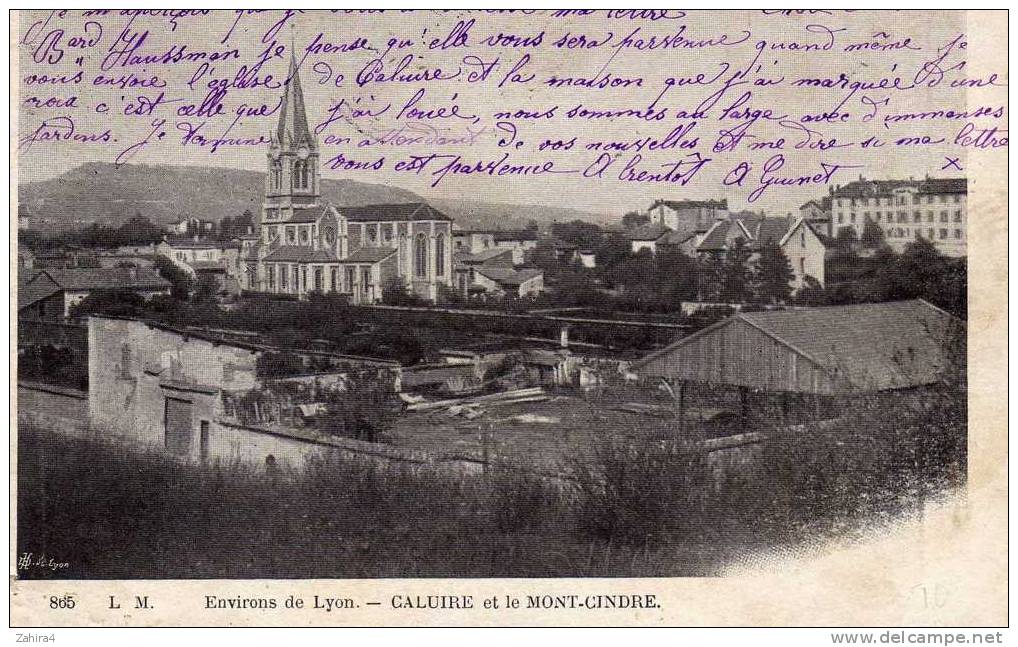 je m'aperçois que je vous a ma lettre chez
Bard Haussman je pense qu'elle vous sera parvenue quand même je
vous envoie l'église de Caluire Et la maison que j'ai marquée D'une
croix c'est celle que j'ai louée, nous sommes au large avec d'immenses
jardins. Je termine en attendant de vos nouvelles Et me dire si ma lettre
vous est parvenue A bientôt A Guinet X
H. Sc. Lyon
865 L M. Environs de Lyon. — CALUIRE et le MONT-CINDRE.
Zahira4
www.delcampe.net